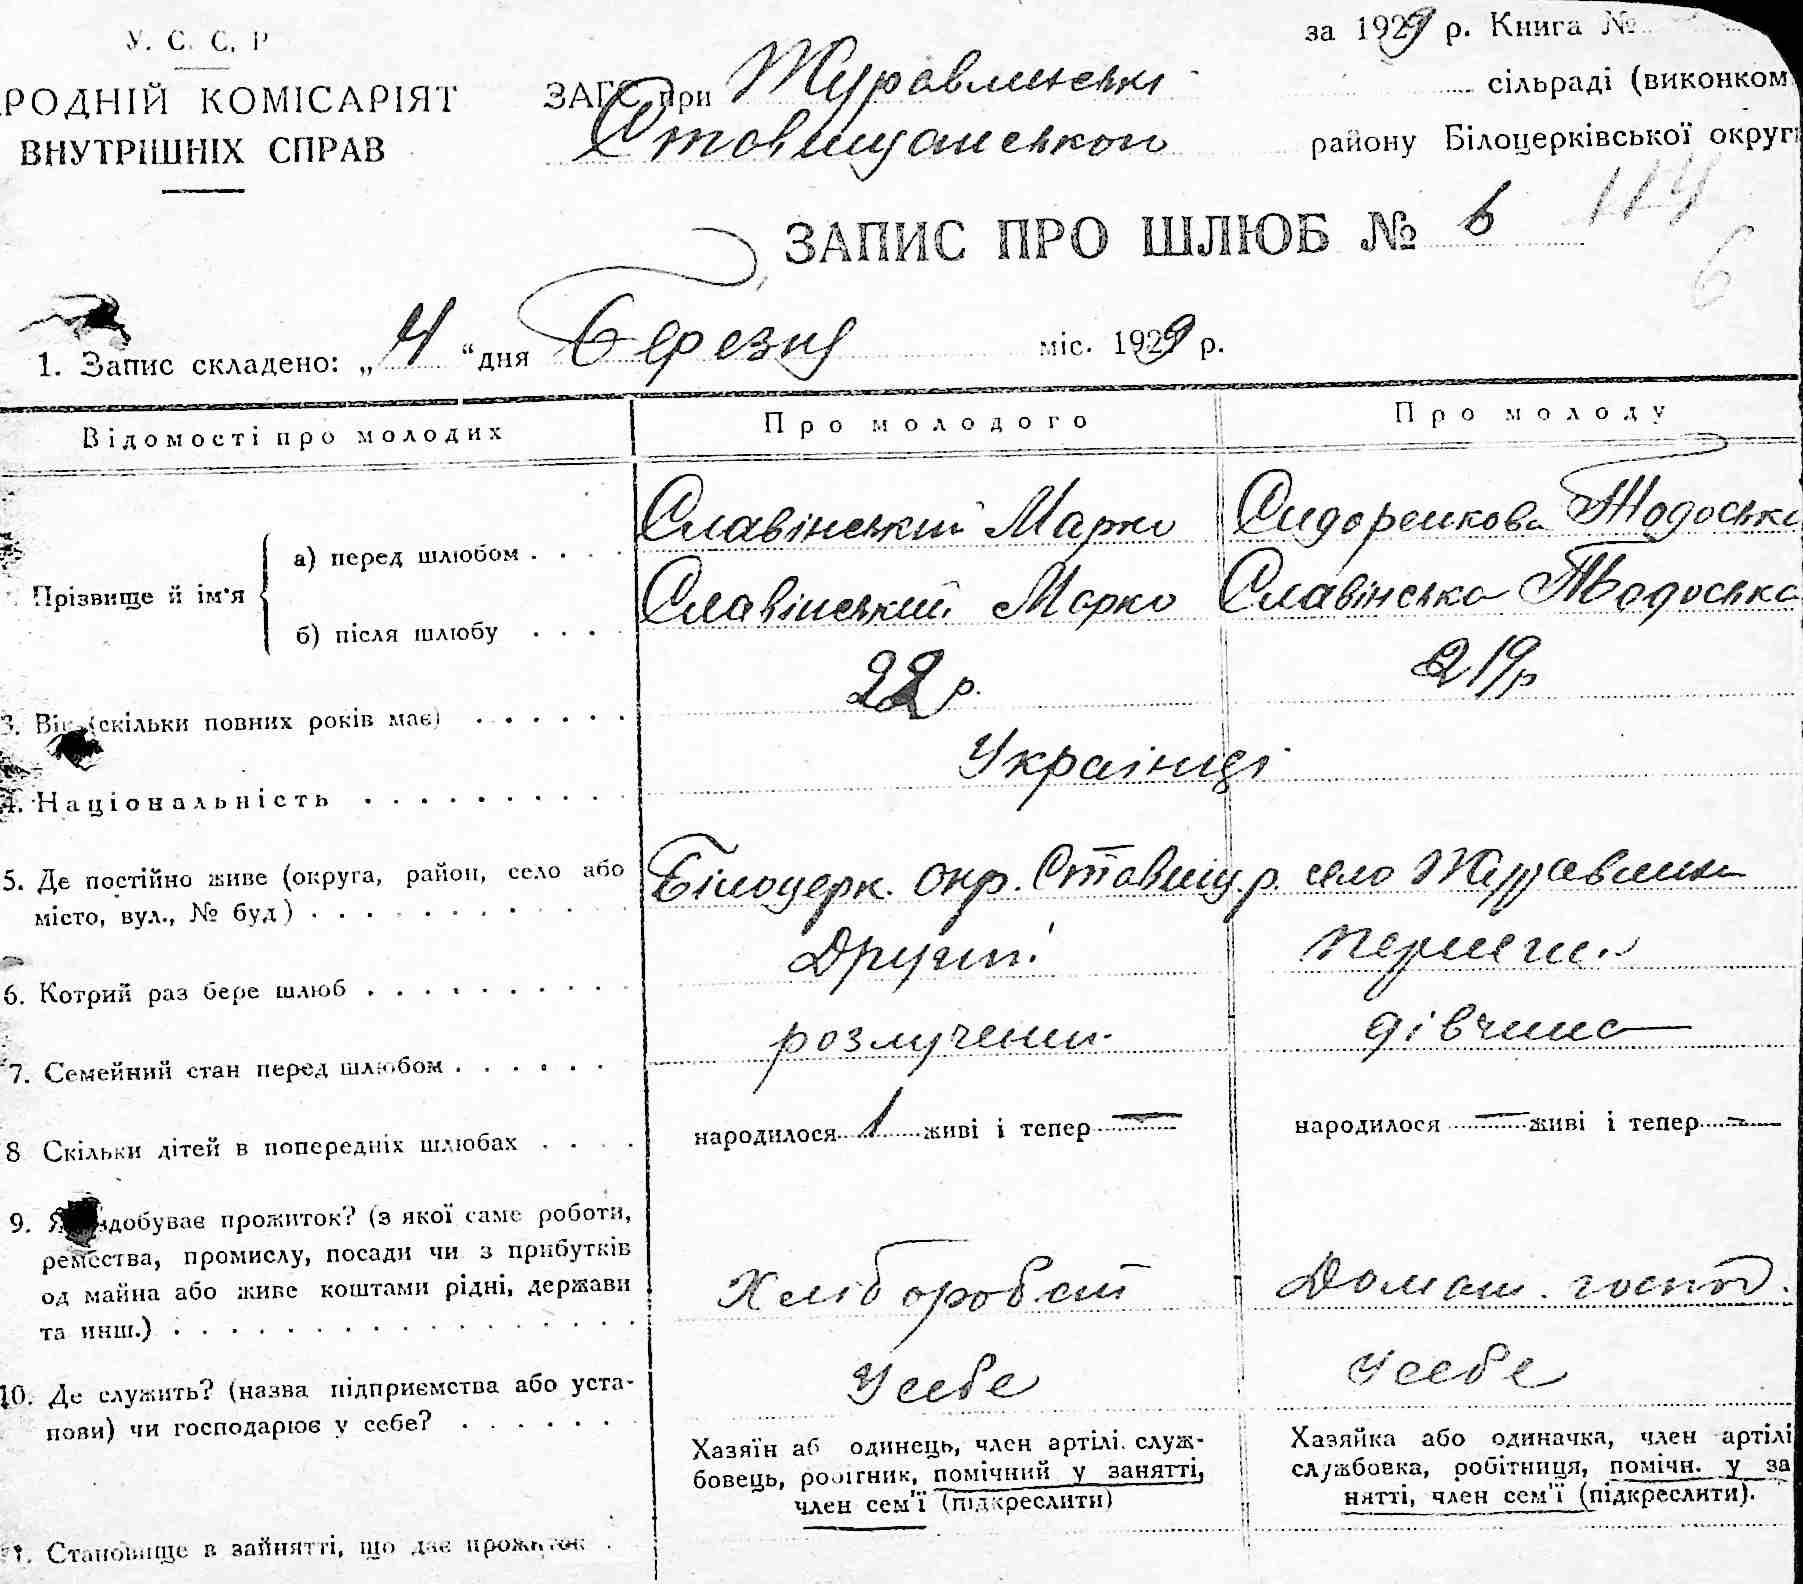 У. С. С. Р
за 1929 р. Книга №
РОДНІЙ КОМІСАРІЯТ
ЗАГС при Журавлинській сільраді (виконком
ВНУТРІШНІХ СПРАВ
Ставищанського району Білоцерківської округи
114
ЗАПИС ПРО ШЛЮБ № 6
6
1. Запис складено: „ 4 “ дня Березня міс. 1929 р.
Відомості про молодих
Про молодого
Про молоду
Прізвище й ім'я
а) перед шлюбом . . . .
Славінський Марко
Сидоренкова Тодоська
б) після шлюбу . . . .
Славінський Марко
Славінська Тодоська
3. Вік (скільки повних років має) . . . . . .
22 р.
21 р
4. Національність . . . . . . . . . .
Українці
5. Де постійно живе (округа, район, село або
місто, вул., № буд) . . . . . . . . . . .
Білоцерк. окр. Ставищ. р. село Журавлиха
6. Котрий раз бере шлюб . . . . . . . . . .
Другий
7. Семейний стан перед шлюбом . . . . . .
розлучений
дівчина
8 Скільки дітей в попередніх шлюбах . . . .
народилося 1 живі і тепер —
народилося — живі і тепер —
9. Як здобуває прожиток? (з якої саме роботи,
ремества, промислу, посади чи з прибутків
од майна або живе коштами рідні, держави
та инш.) . . . . . . . . . . . . . . . .
Хлібороб
Домаш. госпо.
10. Де служить? (назва підприємства або уста-
нови) чи господарює у себе? . . . . . .
У себе
У себе
Хазяїн аб одинець, член артілі, служ-
бовець, робітник, помічний у занятті,
член сем'ї (підкреслити)
Хазяйка або одиначка, член артілі
службовка, робітниця, помічн. у за
нятті, член сем'ї (підкреслити).
1. Становище в зайнятті, що дає прожиток .